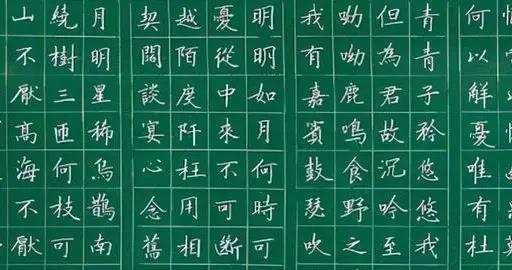 何以解憂唯有杜
青青子衿悠悠我
但為君故沉吟至
呦呦鹿鳴食野之
我有嘉賓鼓瑟吹
明明如月何時可
憂從中來不可斷
越陌度阡枉用相
契闊談宴心念舊
月明星稀烏鵲南
繞樹三匝何枝可
山不厭高海不厭